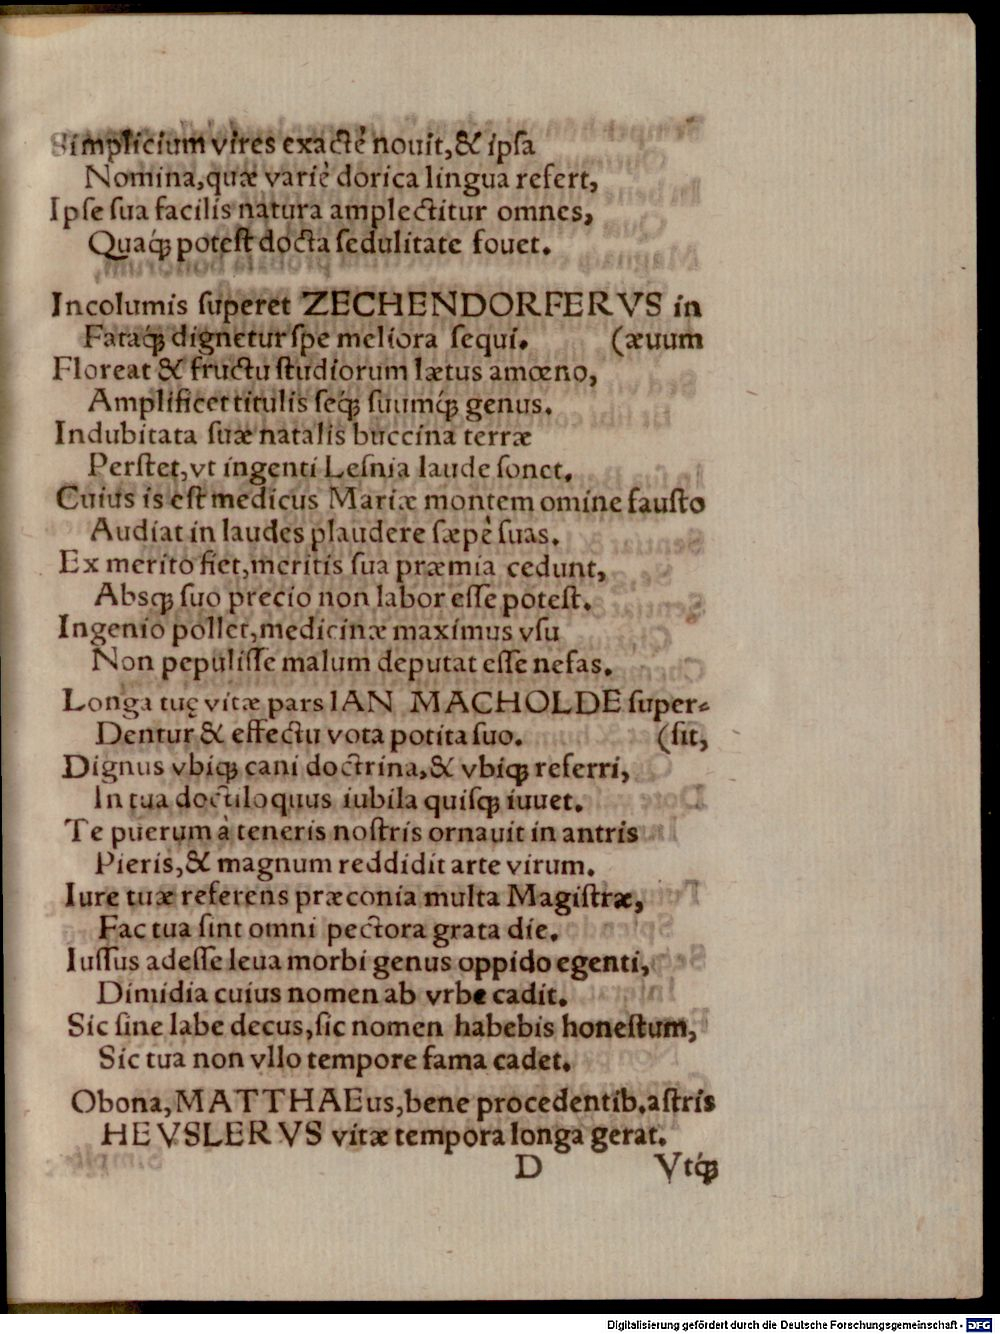 Simplicium vires exactè nouit, & ipsa
Nomina, quæ variè dorica lingua refert,
Ipse sua facilis natura amplectitur omnes,
Quaq́; potest docta sedulitate fouet.
Incolumis superet ZECHENDORFERVS in
Fataq́; dignetur spe meliora sequi. (æuum
Floreat & fructu studiorum lætus amœno,
Amplificet titulis seq́; suumq́; genus.
Indubitata suæ natalis buccina terræ
Perstet, vt ingenti Lesnia laude sonet,
Cuius is est medicus Mariæ montem omine fausto
Audiat in laudes plaudere sæpè suas.
Ex merito fiet, meritis sua præmia cedunt,
Absq; suo precio non labor esse potest.
Ingenio pollet, medicinæ maximus vsu
Non pepulisse malum deputat esse nefas.
Longa tuę vitæ pars IAN MACHOLDE super-
Dentur & effectu vota potita suo. (sit,
Dignus vbiq; cani doctrina, & vbiq; referri,
In tua doctiloquus iubila quisq; iuuet.
Te puerum à teneris nostris ornauit in antris
Pieris, & magnum reddidit arte virum.
Iure tuæ referens præconia multa Magistræ,
Fac tua sint omni pectora grata die.
Iussus adesse leua morbi genus oppido egenti,
Dimidia cuius nomen ab vrbe cadit.
Sic sine labe decus, sic nomen habebis honestum,
Sic tua non vllo tempore fama cadet.
Obona, MATTHAEus, bene procedentib. astris
HEVSLERVS vitæ tempora longa gerat.
D Vtq́;
Digitalisierung gefördert durch die Deutsche Forschungsgemeinschaft - DFG